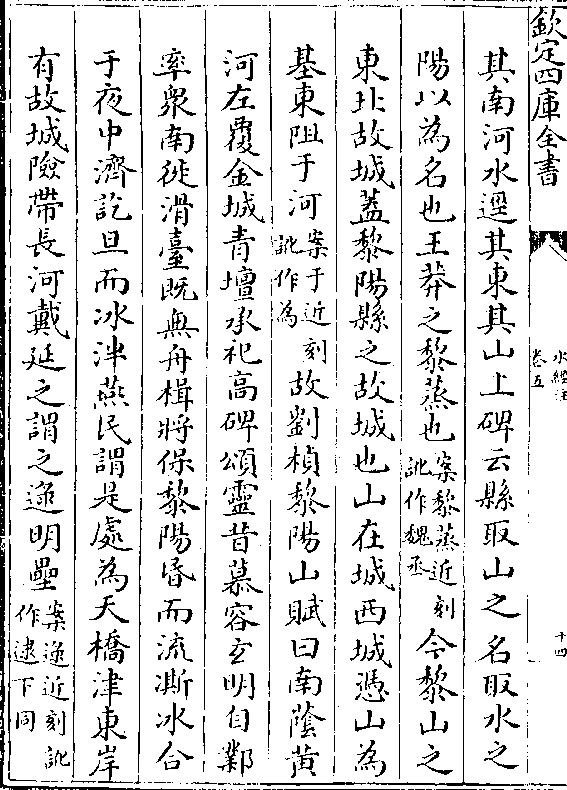 欽定四庫全書
水經注
卷五
十四
其南河水逕其東其山上碑云縣取山之名取水之
陽以為名也王莽之黎蒸也案黎蒸近刻訛作魏丞今黎山之
東北故城蓋黎陽縣之故城也山在城西城憑山為
基東阻于河案于近刻訛作為故劉楨黎陽山賦曰南蔭黄
河左覆金城青壇承祀高碑頌靈昔慕容𤣥明自鄴
率衆南徙滑臺既無舟楫將保黎陽昏而流澌冰合
于夜中濟訖旦而冰泮燕民謂是處為天橋津東岸
有故城險帶長河戴延之謂之逯明壘案逯近刻訛作逮下同